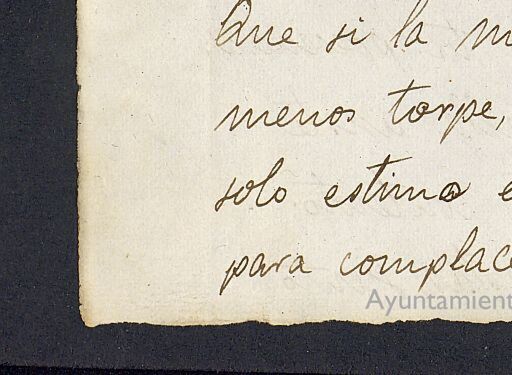 Que si la m
menos torpe,
solo estimo e
para complace
Ayuntamient